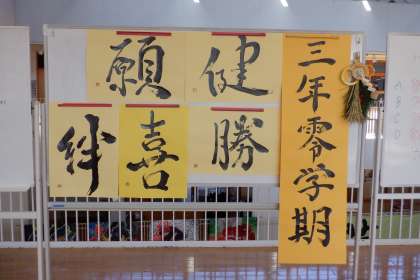 三年零学期
健
願
勝
喜
絆